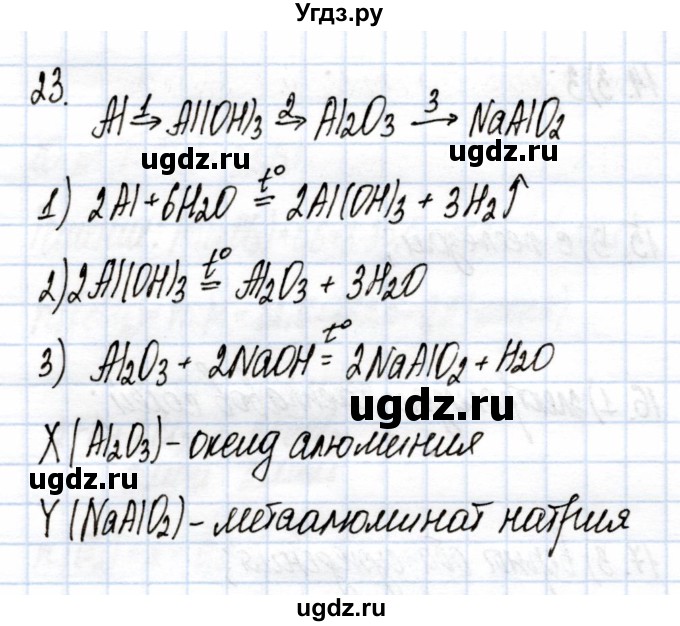 Угдз.ру
23.
Al →¹ Al(OH)₃ →² Al₂O₃ →³ NaAlO₂
ugdz.ru ugdz.ru
1) 2Al + 6H₂O =t° 2Al(OH)₃ + 3H₂↑
2) 2Al(OH)₃ =t° Al₂O₃ + 3H₂O
3) Al₂O₃ + 2NaOH =t° 2NaAlO₂ + H₂O
ugdz.ru
X (Al₂O₃) - оксид алюминия
ugdz.ru
Y (NaAlO₂) - метаалюминат натрия
ugdz.ru
ugdz.ru